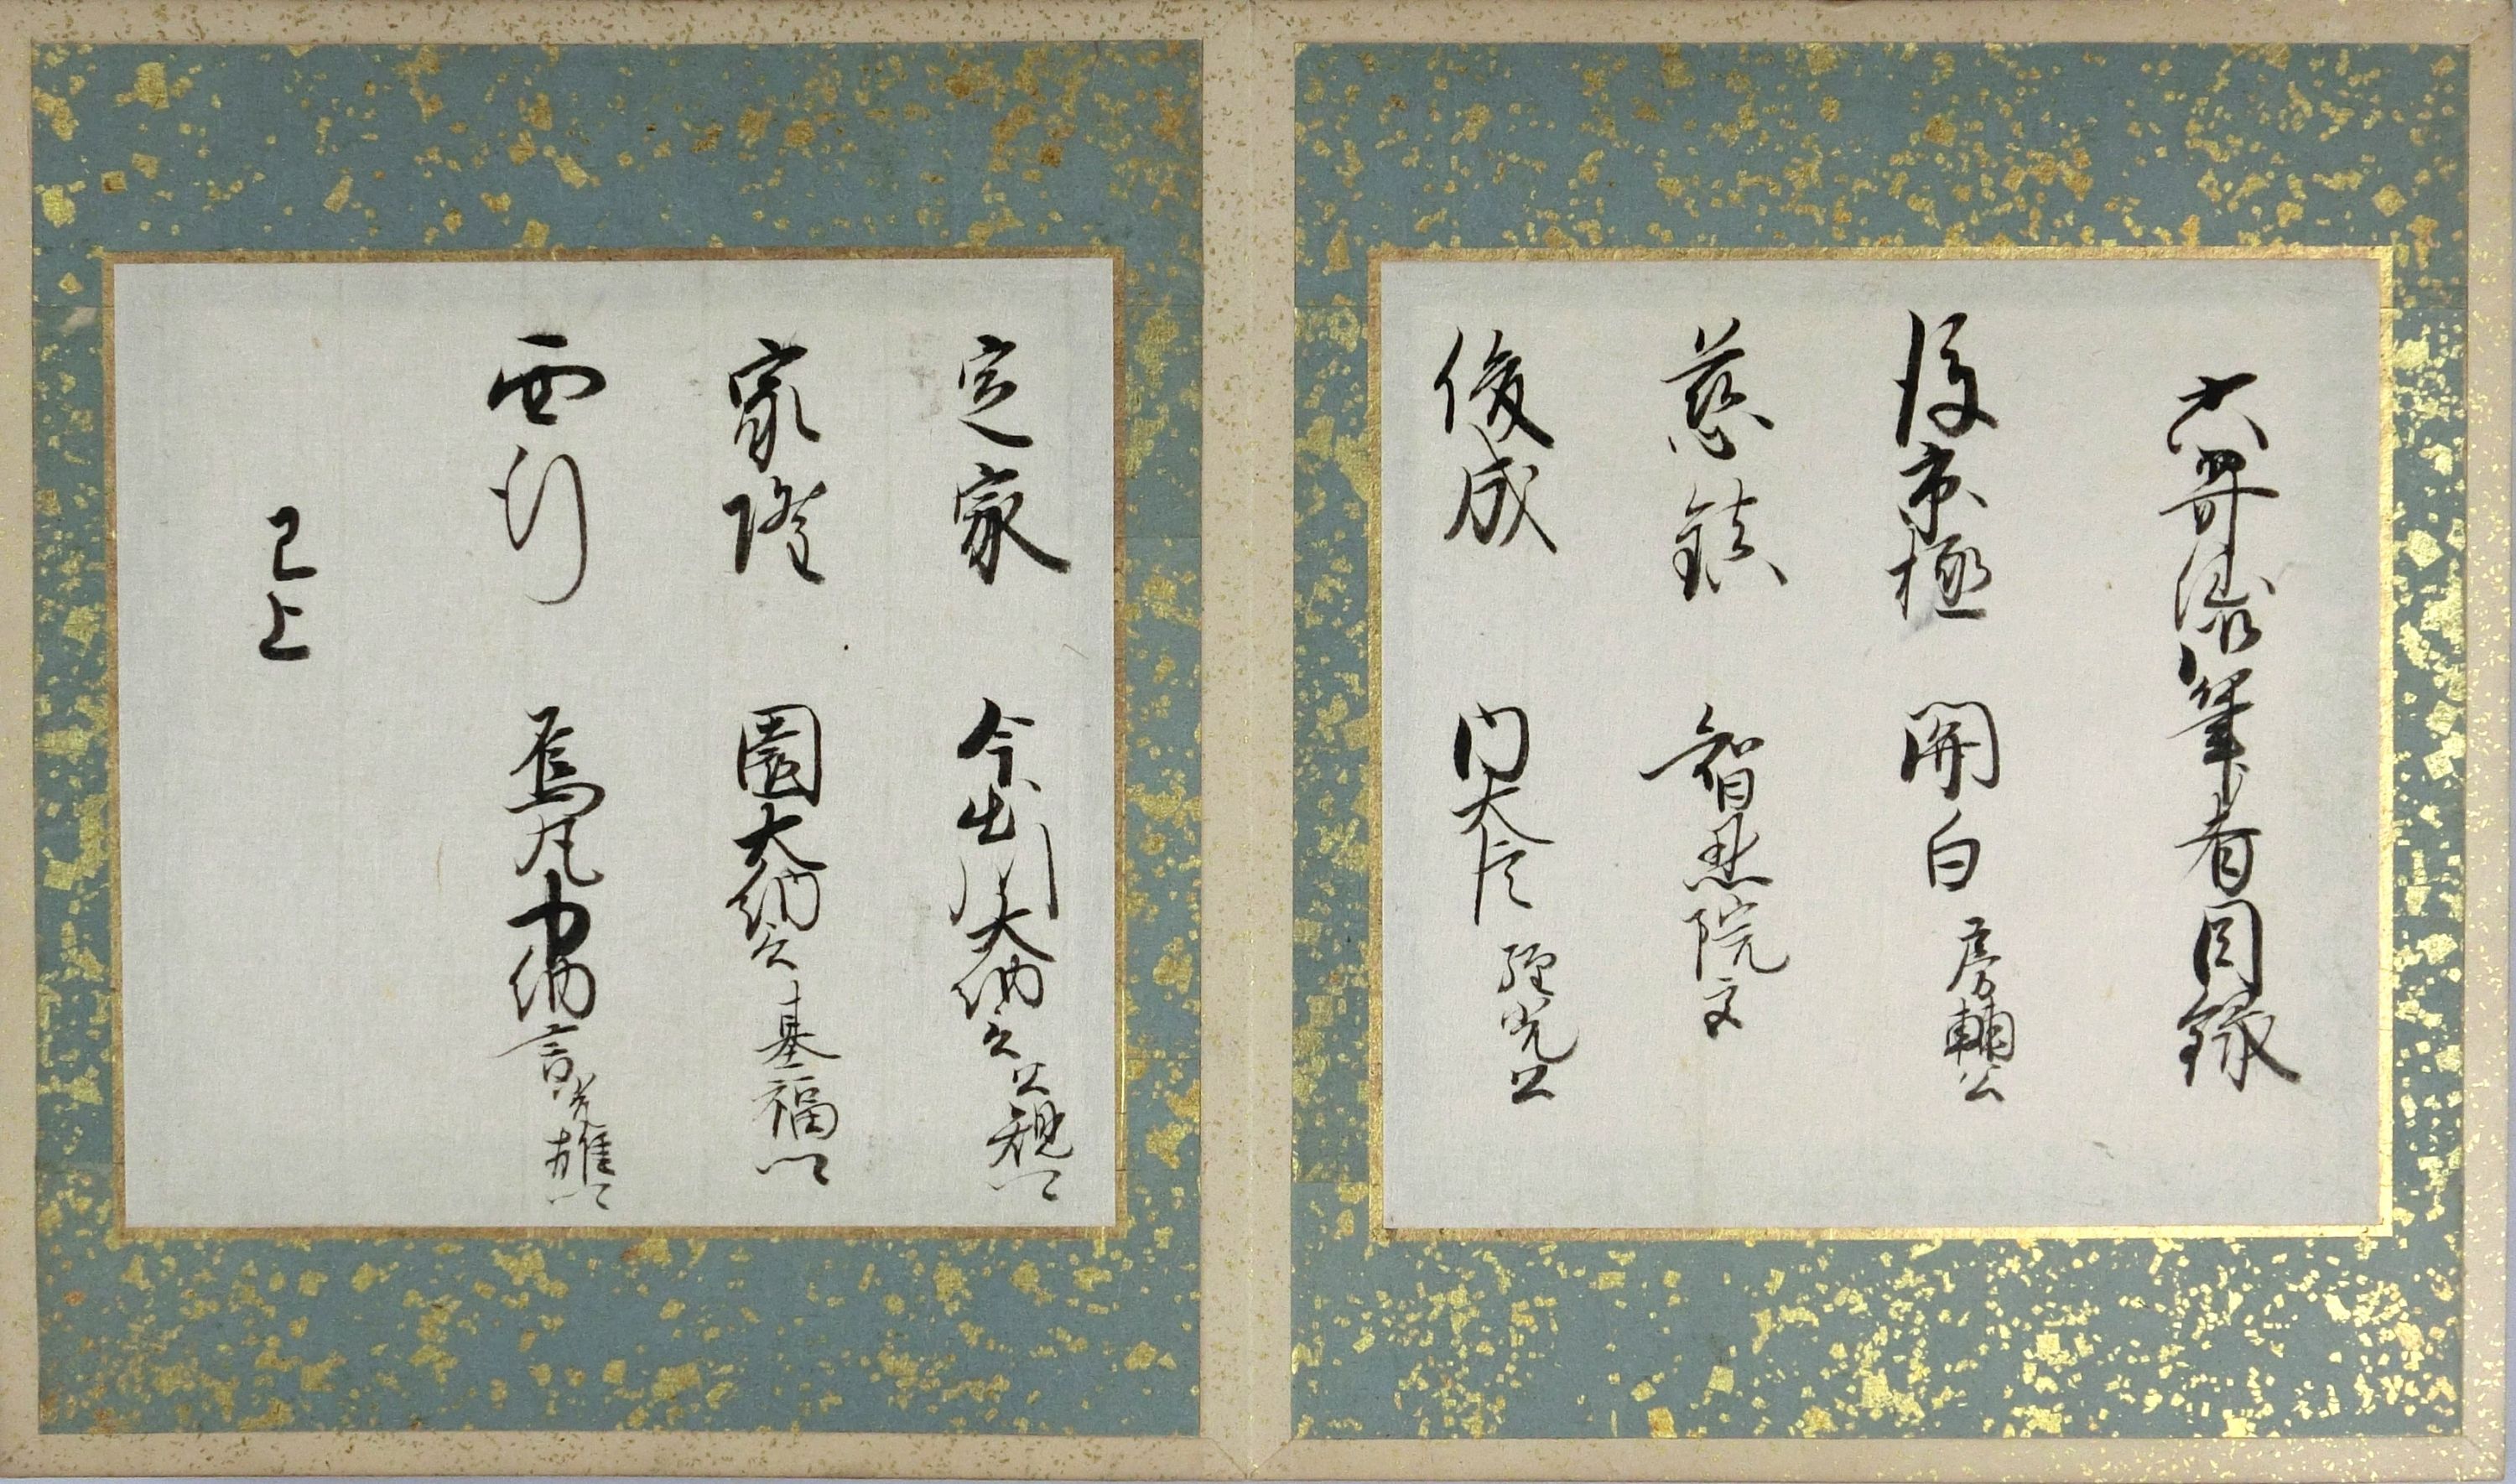 六哥僊筆者目録
後京極 関白房輔公
慈鎮 智恩院文
俊成 内大臣経光公
定家 今出川大納言公規卿
家隆 園大納言基福卿
西行 烏丸中納言光雄卿
已上